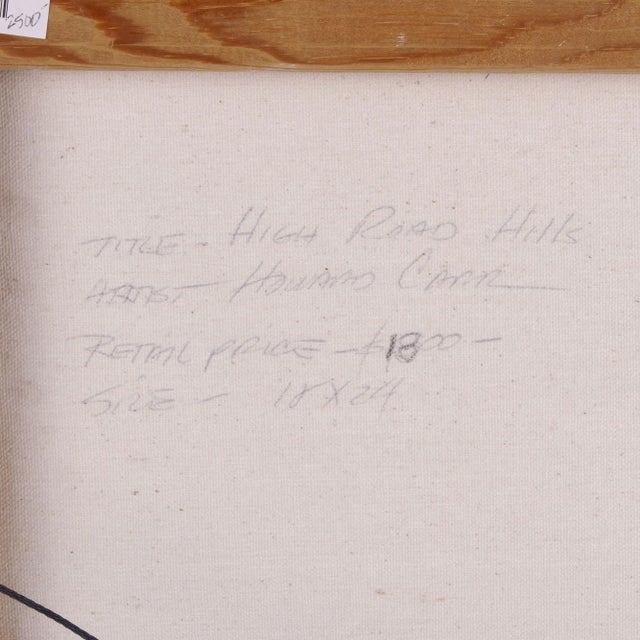 2500
TITLE - HIGH ROAD HILLS
ARTIST - HOWARD CARR
RETAIL PRICE - $1800 -
SIZE - 18 X 24